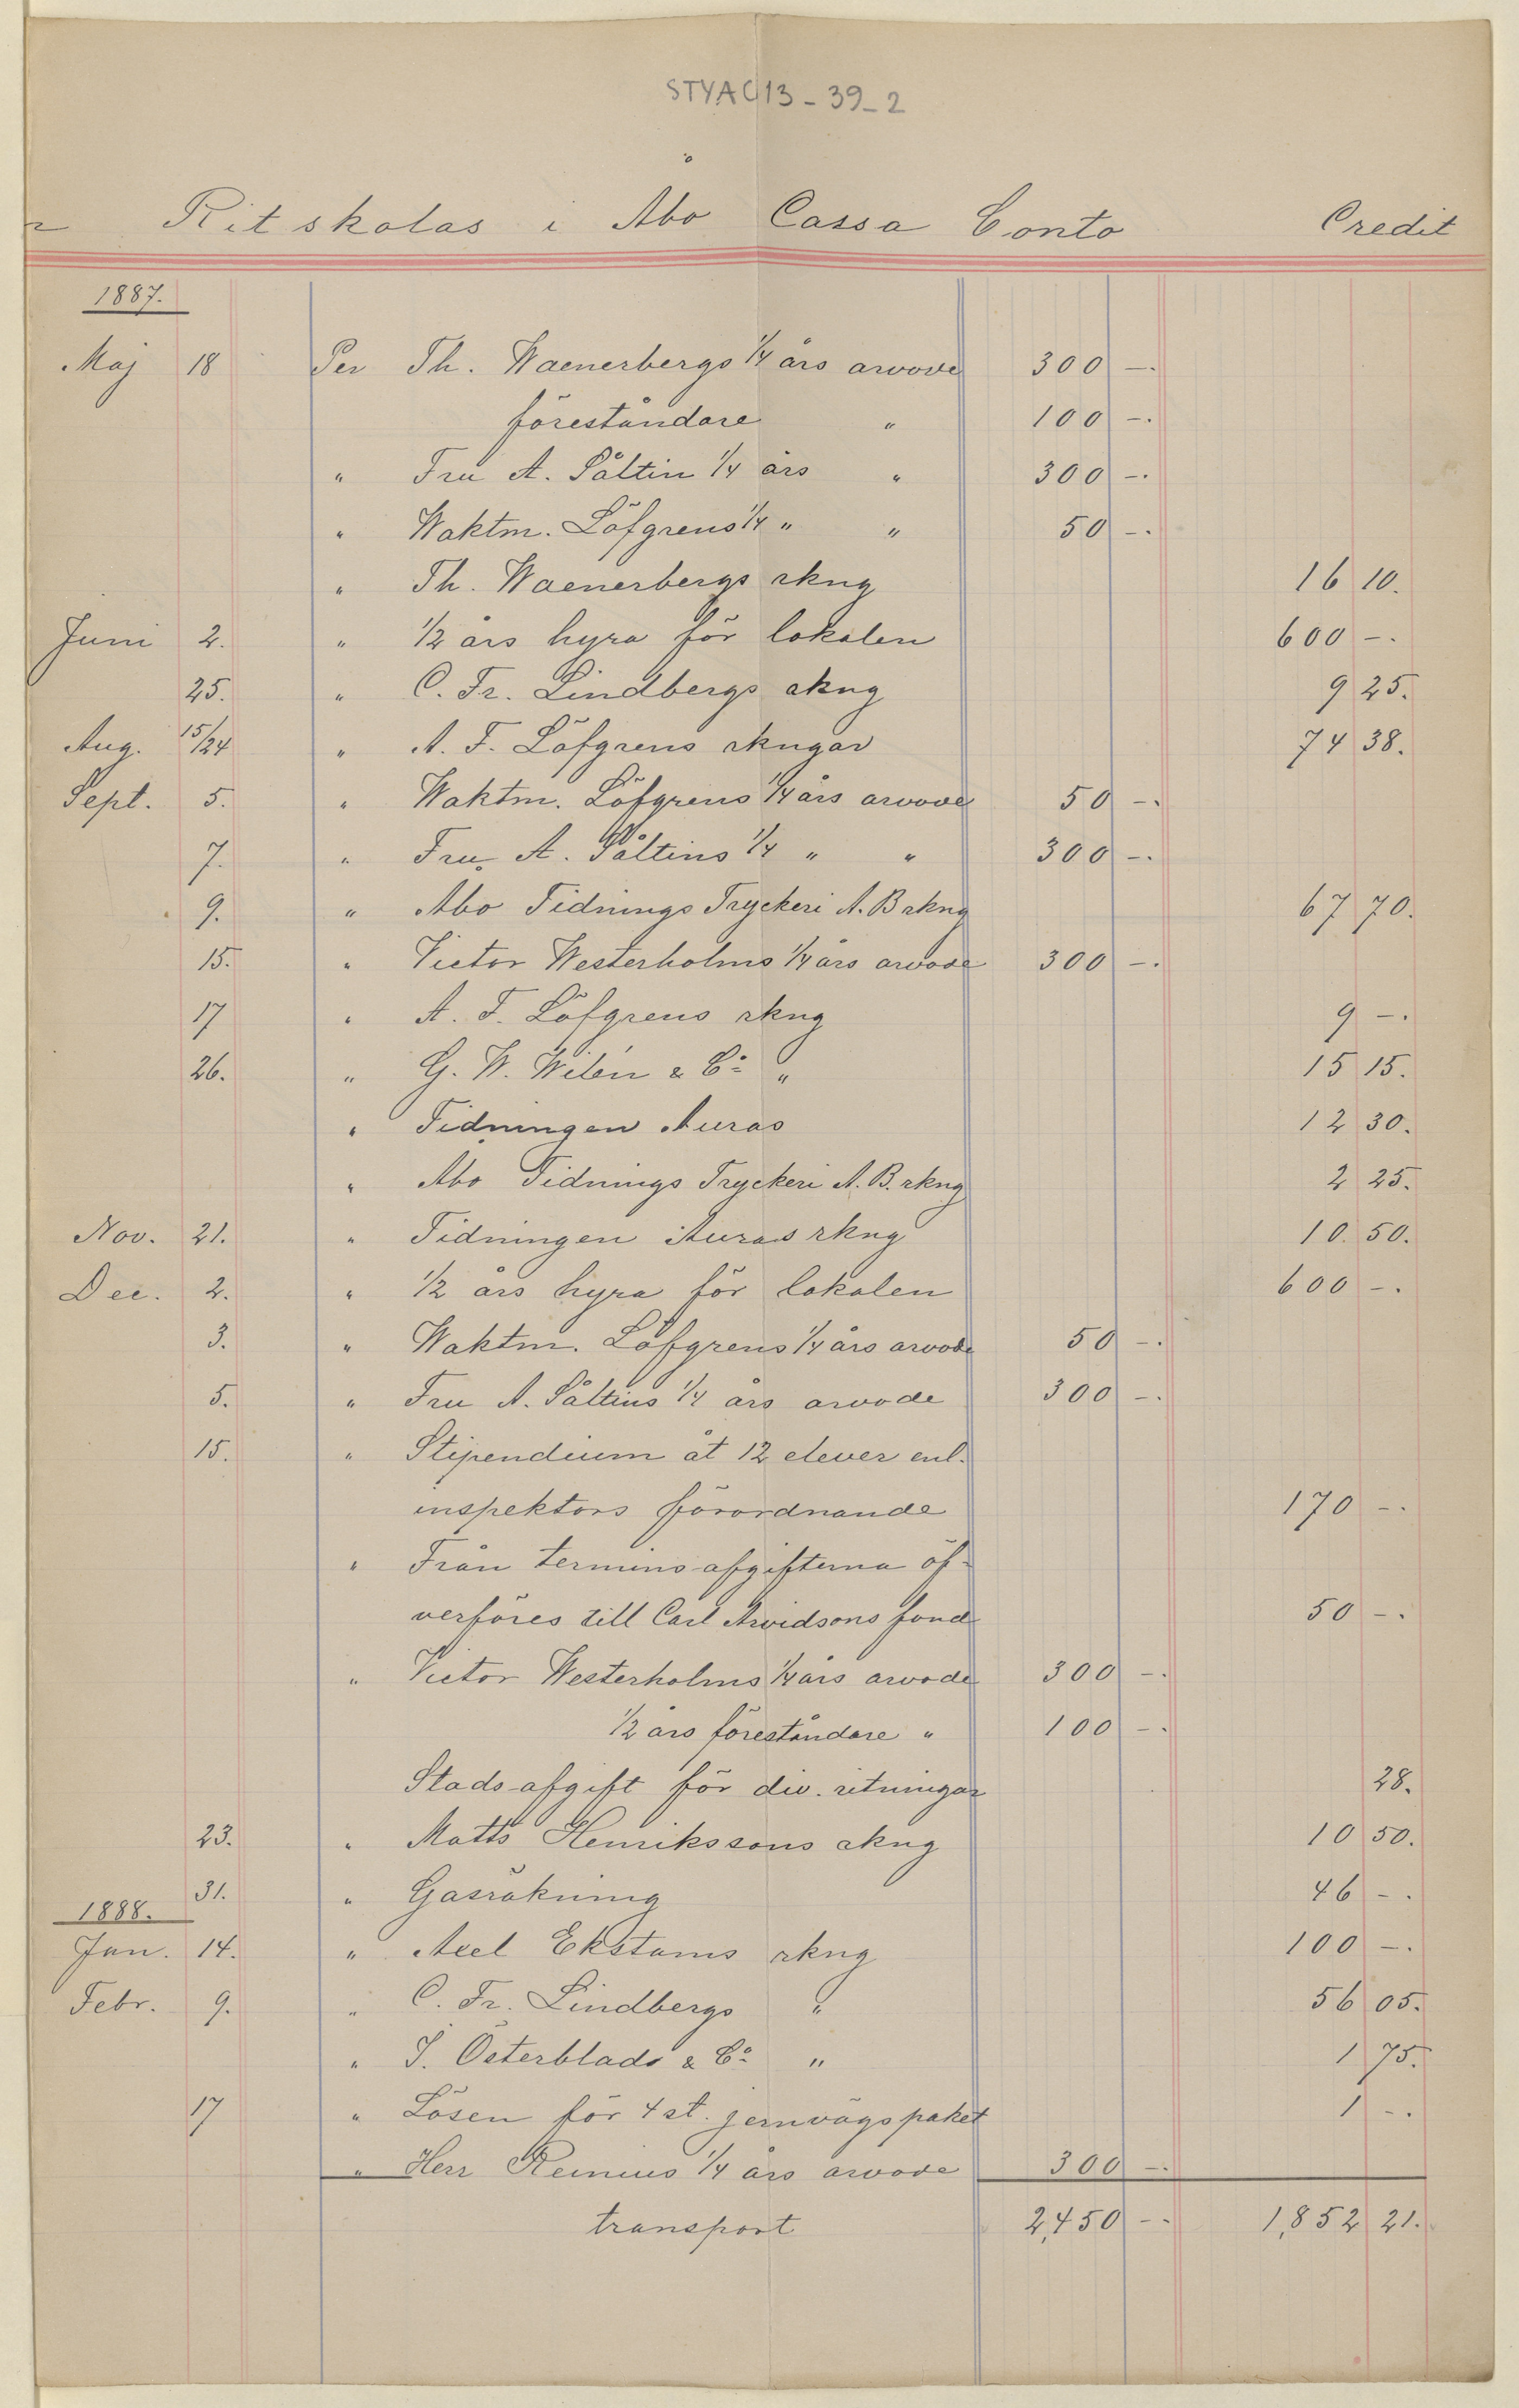 STYAC13-39-2
Ritskolas i Åbo Cassa Conto Credit
1887.
Maj 18 Per Th. Waenerbergs 1/4 års arvode 300 -.
föreståndare " 100 -.
" Fru A. Sältin 1/4 års " 300 -.
" Waktm. Löfgrens 1/4 " " 50 -.
" Th. Waenerbergs rkng 16 10.
Juni 2. " 1/2 års hyra för lokalen 600 -.
25. " C. Fr. Lindbergs rkng 9 25.
Aug. 15/24 " A. F. Löfgrens rkngar 74 38.
Sept. 5. " Waktm. Löfgrens 1/4 års arvode 50 -.
7. " Fru A. Sältins 1/4 " " 300 -.
9. " Åbo Tidnings Tryckeri A. B rkng 67 70.
15. " Victor Westerholms 1/4 års arvode 300 -.
17 " A. F. Löfgrens rkng 9 -.
26. " G. W. Wilén & Co " 15 15.
" Tidningen Auras 12 30.
" Åbo Tidnings Tryckeri A. B. rkng 2 25.
Nov. 21. " Tidningen Auras rkng 10. 50.
Dec. 2. " 1/2 års hyra för lokalen 600 -.
3. " Waktm. Löfgrens 1/4 års arvode 50 -.
5. " Fru A. Sältins 1/4 års arvode 300 -.
15. " Stipendium åt 12 elever enl.
inspektors förordnande 170 -.
" Från termins-afgifterna öf-
verföres till Carl Arvidsons fond 50 -.
" Victor Westerholms 1/4 års arvode 300 -.
1/2 års föreståndare " 100 -.
Stads-afgift för div. ritningar 28.
23. " Matts Henrikssons rkng 10 50.
31. " Gasräkning 46 -.
1888.
Jan. 14. " Axel Ekstams rkng 100 -.
Febr. 9. " C. Fr. Lindbergs " 56 05.
" J. Österblads & Co " 1 75.
17 " Lösen för 4 st. jernvägspaket 1 -.
" Herr Reinius 1/4 års arvode 300 -.
transport 2,450 -. 1,852 21.